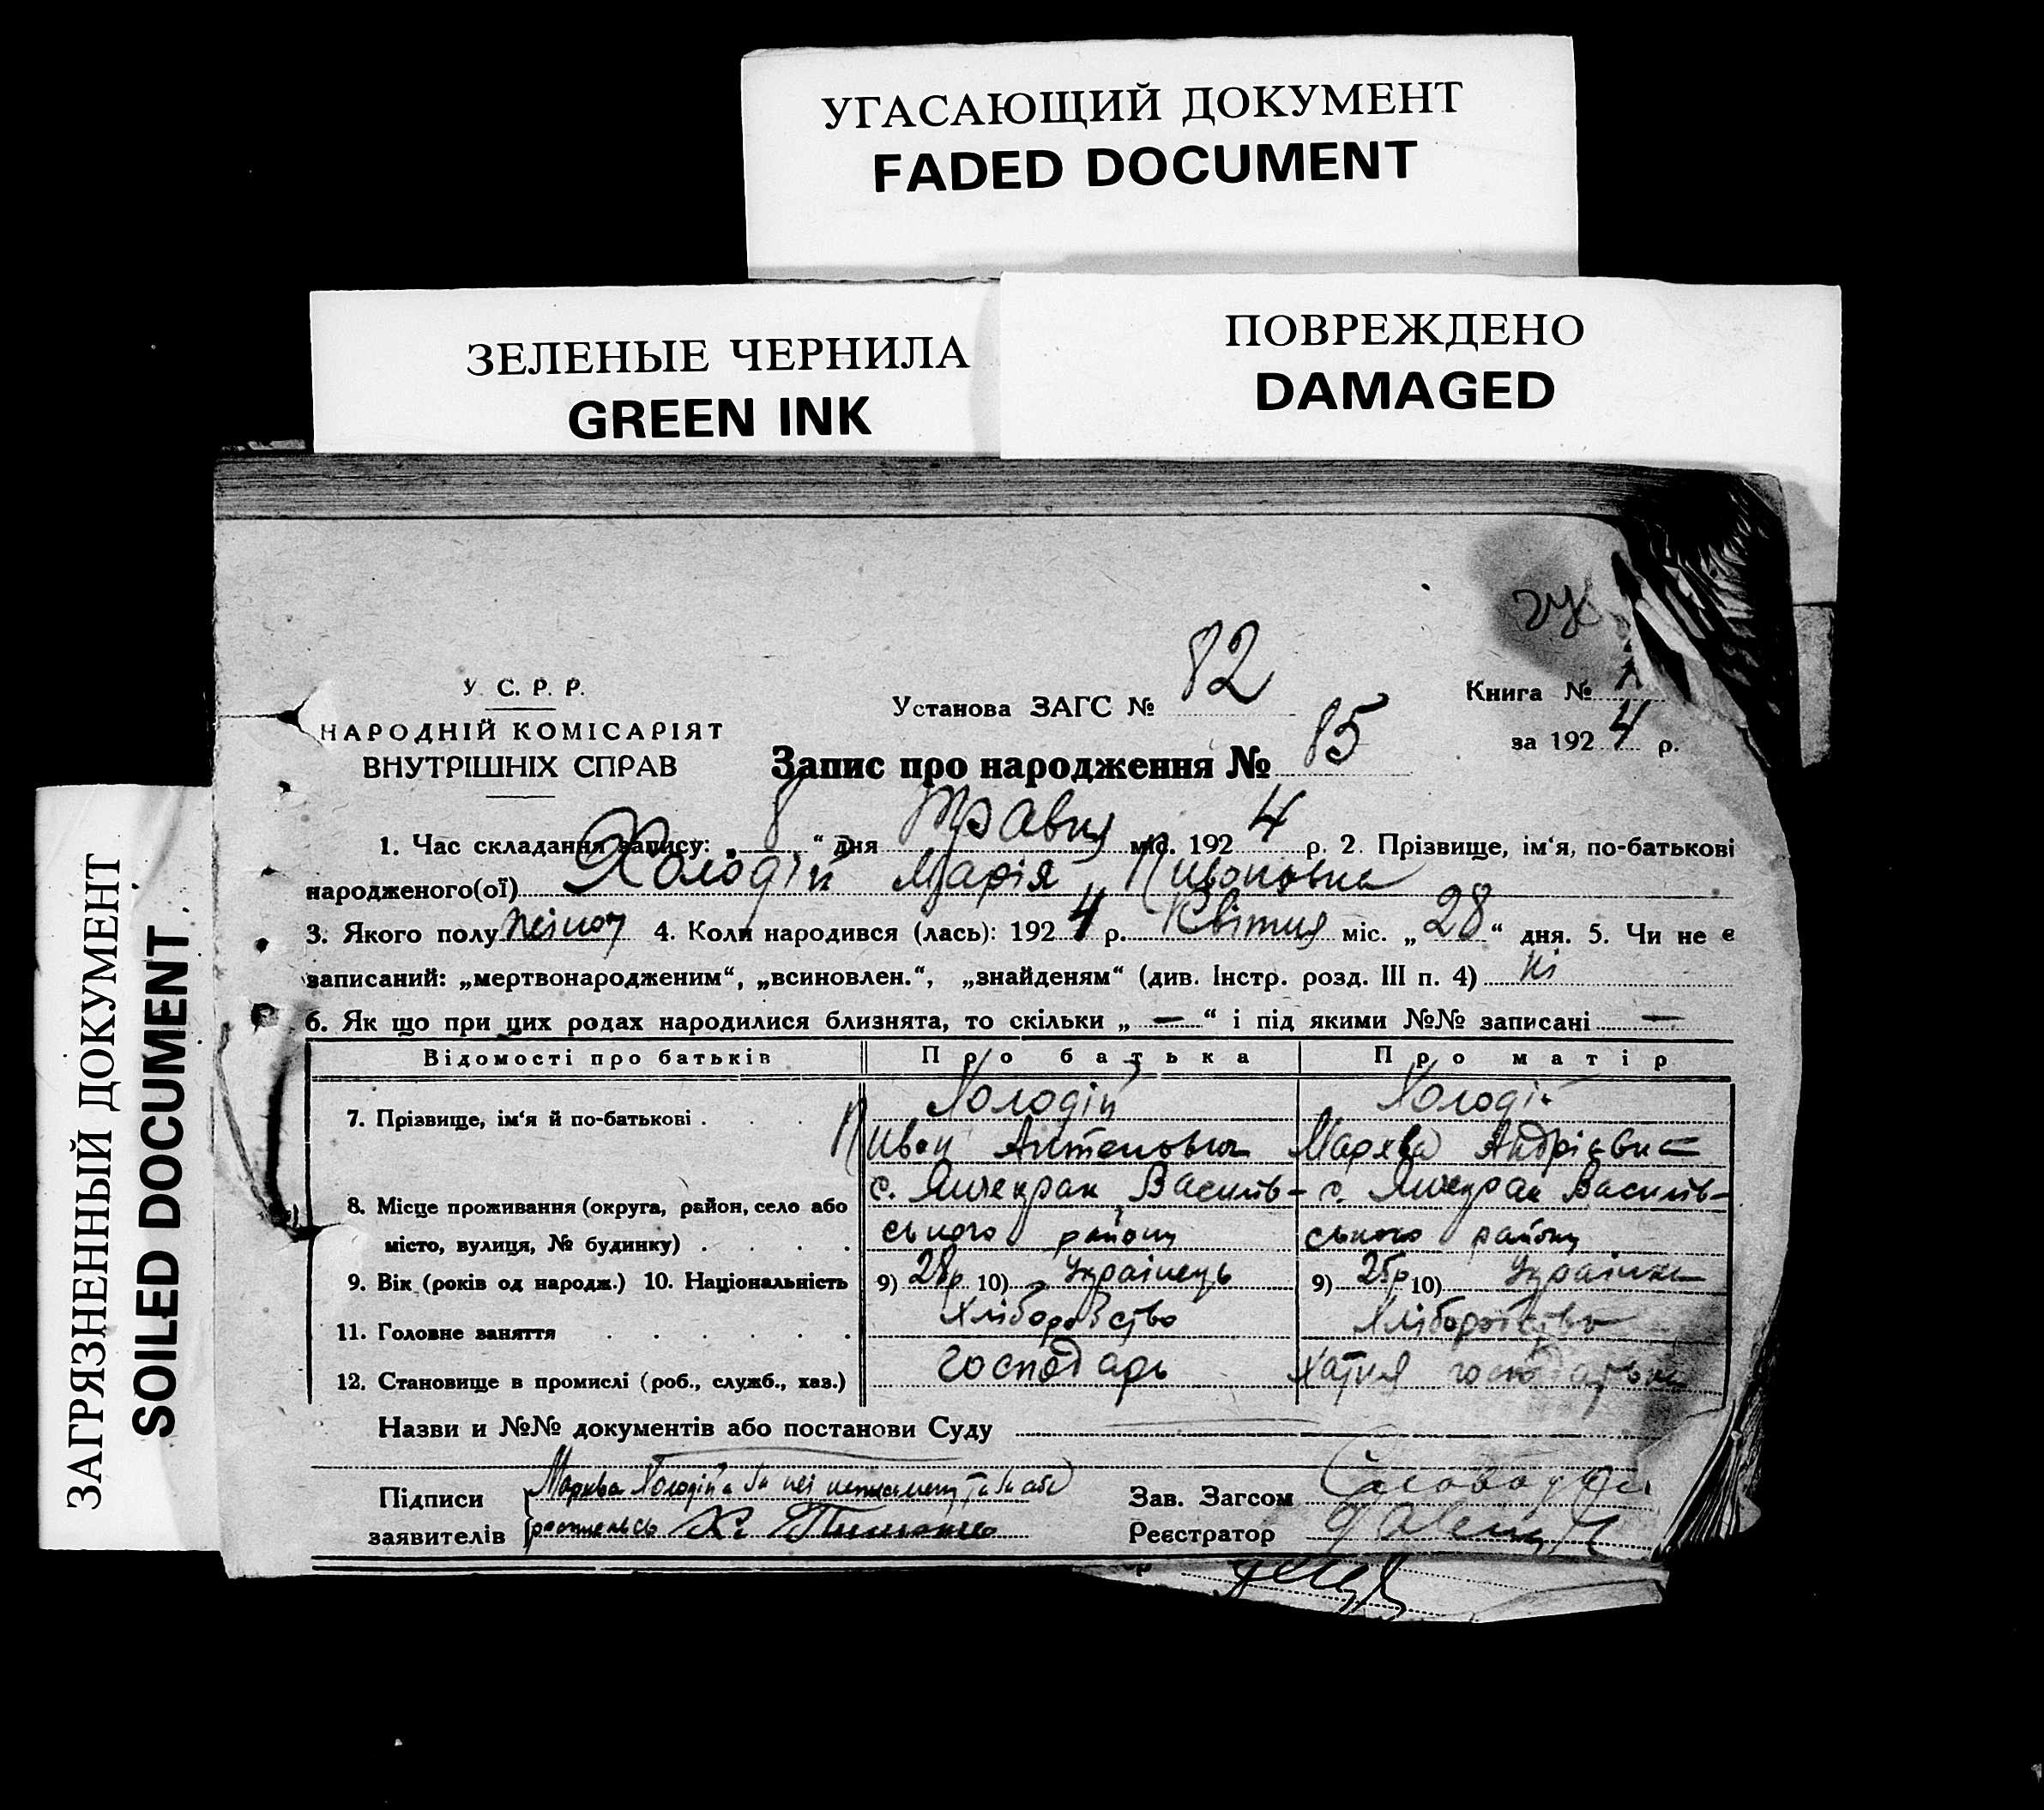 УГАСАЮЩИЙ ДОКУМЕНТ
FADED DOCUMENT
ЗЕЛЕНЫЕ ЧЕРНИЛА
GREEN INK
ПОВРЕЖДЕНО
DAMAGED
ЗАГРЯЗНЕННЫЙ ДОКУМЕНТ
SOILED DOCUMENT
У. С. Р. Р.
НАРОДНІЙ КОМІСАРІЯТ
ВНУТРІШНІХ СПРАВ
Установа ЗАГС № 82
Книга №
за 1924 р.
Запис про народження № 85
1. Час складання запису: „8“ дня Травня міс. 1924 р. 2. Прізвище, ім‘я, по-батькові
народженого(ої) Холодій Марія
3. Якого полу жіноч 4. Коли народився (лась): 1924 р. Квітня міс. „28“ дня. 5. Чи не є
записаний: „мертвонародженим“, „всиновлен.“, „знайденям“ (див. Інстр. розд. III п. 4) Ні
6. Як що при цих родах народилися близнята, то скільки „—“ і під якими №№ записані —
Відомості про батьків Про батька Про матір
7. Прізвище, ім‘я й по-батькові . . . Холодій Холодій
Андріївна
8. Місце проживання (округа, район, село або с. Янчекрак Василів- с. Янчекрак Василів-
місто, вулиця, № будинку) . . . . ського району ського району
9. Вік (років од народж.) 10. Національність 9) 28р 10) Українець 9) 25р 10) Українка
11. Головне заняття . . . . . . Хліборобство Хліборобство
12. Становище в промислі (роб., служб., хаз.) господарь хатня
Назви и №№ документів або постанови Суду
Підписи Холодій
заявителів
Зав. Загсом
Реєстратор